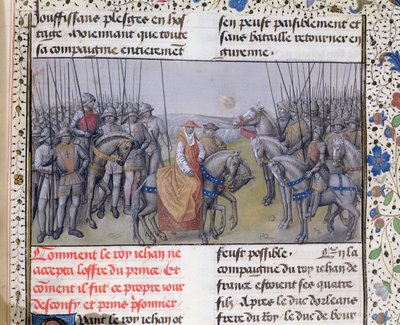 souffissans plesges en hos
tage Moiennant que toute
sa compaignie entierement
sen peust paisiblement et
sans bataille retourner en
guienne.
Comment le roy iehan ne
accepta loffre du prince Et
coment il fut ce propre iour
desconfy et prins prisonner
uant le roy iehan ot
feust possible. En la
compaignie du roy iehan de
france estoient ses quatre
filz Apres le duc dorleans
frere du roy le duc de bour